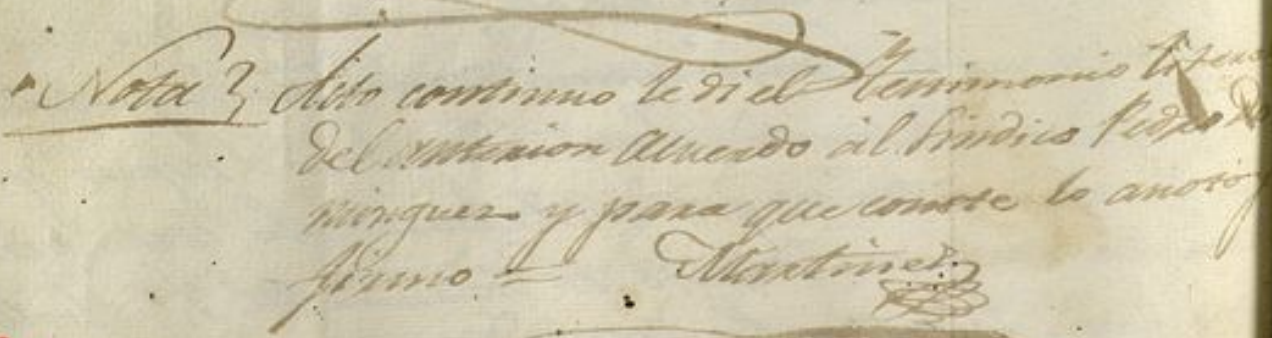 Nota Acto continuo le di el testimonio
del anterior Acuerdo al Sindico Pedro Do
minguez y para que conste lo anoto y
firmo = Martinez